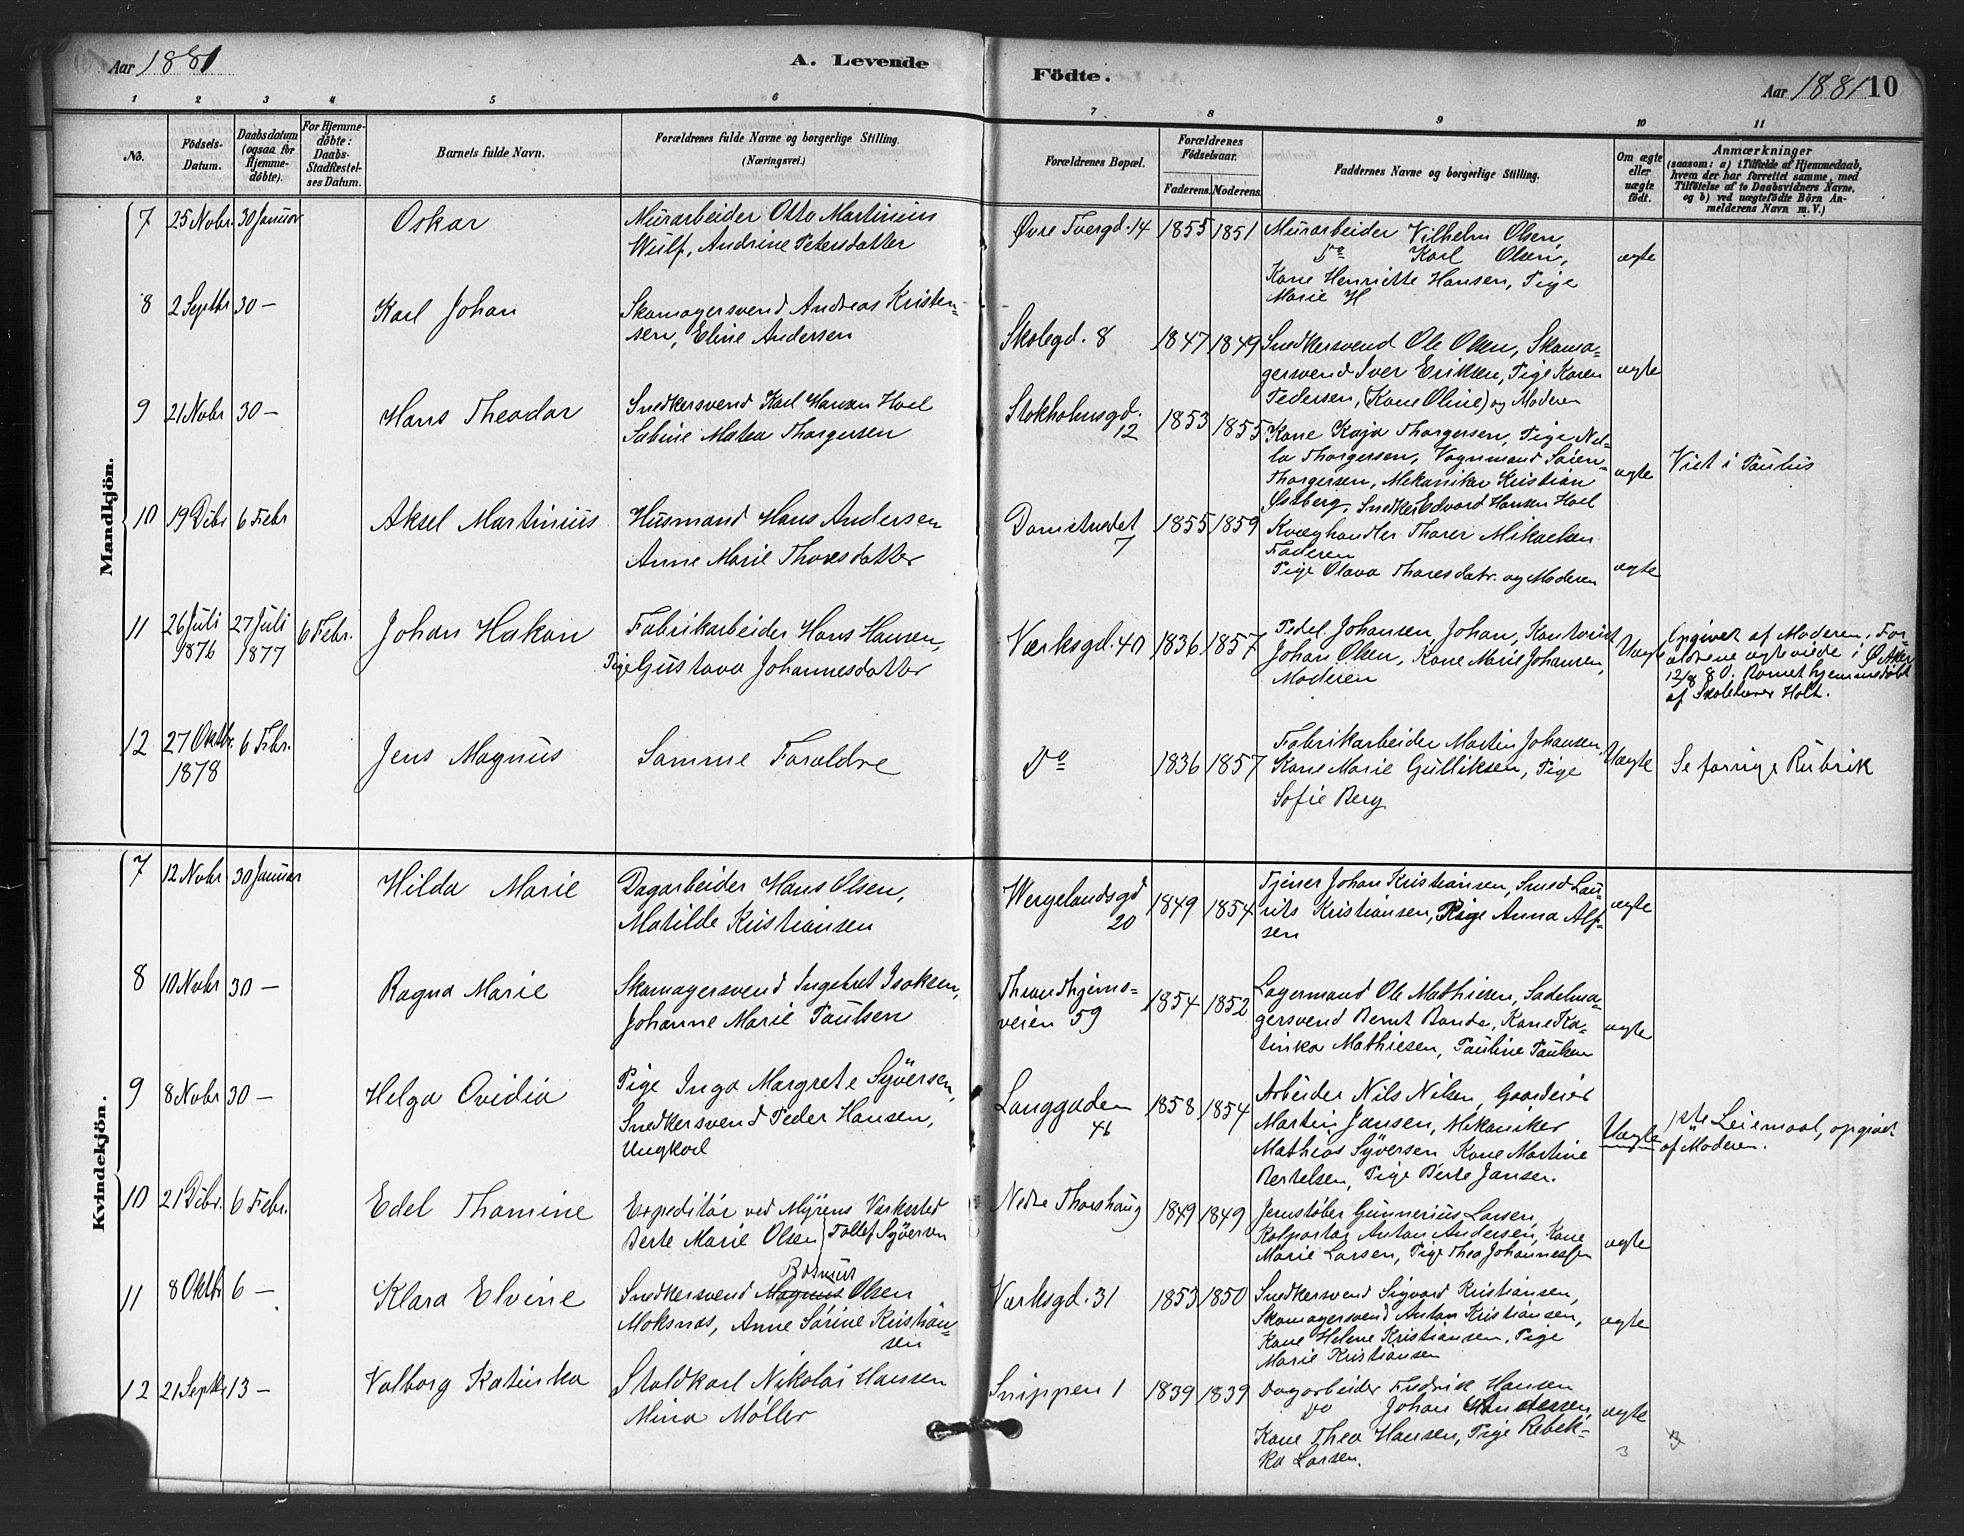 Aar 1881
A. Levende
Födte.
Aar 1881 10
1 2 3 4 5 6 7 8 9 10 11
No.
Födsels-Datum.
Daabsdatum (ogsaa for Hjemme-döbte).
For Hjemme-döbte: Daabs-Stadfæstel-ses Datum.
Barnets fulde Navn.
Forældrenes fulde Navne og borgerlige Stilling.
(Næringsvei.)
Forældrenes Bopæl.
Forældrenes Födselsaar.
Faderens. Moderens.
Faddernes Navne og borgerlige Stilling.
Om ægte eller uægte födt.
Anmærkninger
(saasom: a) i Tilfælde af Hjemmedaab,
hvem der har forrettet samme, med
Tilföielse af to Daabsvidners Navne.
og b) ved uægtefödte Börn An-
melderens Navn m. V.)
Mandkjön.
7 25 Novbr. 30 Januar Oskar
Murarbeider Otto Martinius
Wulf, Andrine Petersdatter
Øvre Tvergd. 14 1855 1851
Murarbeider Vilhelm Olsen,
Do Karl Olsen,
Kone Henriette Hansen, Pige
Marie H
ægte
8 2 Septbr 30 — Karl Johan
Skomagersvend Andreas Kristen-
sen, Eline Andersen
Skolegd. 8 1847 1849
Snedkersvend Ole Olsen, Skoma-
gersvend Iver Eriksen, Pige Karen
Pedersen, (Kone Oline) og Moderen
ægte
9 21 Novbr 30 — Hans Theodor
Snedkersvend Karl Hansen Hoel
Sabine Matea Thorgersen
Stokholmsgd. 12 1853 1855
Kone Kaja Thorgersen, Pige Nel-
la Thorgersen, Vognmand Sören
Thorgersen, Mekaniker Kristian
Ystberg, Snedker Edvard Hansen Hoel
ægte
Viet i Paulus
10 19 Dcbr 6 Febr Aksel Martinius
Husmand Hans Andersen
Anne Marie Thoresdatter
Damstredet 7 1855 1859
Kvæghandler Thorer Mikaelsen
Faderen
Pige Olava Thoresdatr. og Moderen
ægte
11 26 Juli 1876 27 Juli 1877 6 Febr. Johan Hakon
Fabrikarbeider Hans Hansen,
Pige Gustava Johannesdatter
Værksgd. 40 1836 1857
Pedel Johansen, Johan,
Johan Olsen, Kone Marie Johansen,
Moderen
Uægte
Opgivet af Moderen. For-
ældrene ægteviede i Ø. Aker
12/8 80. Barnet hjemmedøbt
af Skolelærer Holt.
12 27 Oktbr. 1878 6 Febr. Jens Magnus
Samme Forældre
Do 1836 1857
Fabrikarbeider Martin Johansen,
Kone Marie Gulliksen, Pige
Sofie Berg
Uægte
Se forrige Rubrik
Kvindekjön.
7 12 Novbr. 30 Januar Hilda Marie
Dagarbeider Hans Olsen,
Matilde Kristiansen
Wergelandsgd 20 1849 1854
Tjener Johan Kristiansen, Smed Lau-
rits Kristiansen, Pige Anna Alf-
sen
ægte
8 10 Novbr 30 — Ragna Marie
Skomagersvend Ingebret Isaksen,
Johanne Marie Paulsen
Throndhjems-
veien 59 1854 1852
Lagermand Ole Mathiesen, Sadelma-
gersvend Bernt Bonde, Kone Ka-
tinka Mathiesen, Pauline Paulsen
ægte
9 8 Novbr 30 — Helga Ovidia
Pige Inga Margrete Syversen,
Snedkersvend Peder Hansen,
Ungkarl
Langgaden 46 1858 1854
Arbeider Nils Nilsen, Gaardeier
Martin Jansen, Mekaniker
Mathias Syversen Kone Martine
Bertelsen, Pige Berte Jansen.
Uægte
1ste Leiemaal, opgivet
af Moderen.
10 21 Dcbr. 6 Febr. Edel Thomine
Expeditör ved Myrens Værksted
Berte Marie Olsen Tollef Syversen
Nedre Thorshaug 1849 1849
Jernstøber Gunnerius Larsen,
Kolportör Anton Andersen, Kone
Marie Larsen, Pige Thea Johannessen
ægte
11 8 Oktbr 6 — Klara Elvine
Rasmus
Snedkersvend Magnus Olsen
Moksnæs, Anne Sörine Kristian-
sen
Værksgd. 31 1853 1850
Snedkersvend Sigvard Kristiansen,
Skomagersvend Anton Kristiansen,
Kone Helene Kristiansen, Pige
Marie Kristiansen
ægte
12 21 Septbr 13 — Valborg Katinka
Staldkarl Nikolai Hansen
Mina Møller
Snippen 1 1839 1839
Dagarbeider Fredrik Hansen
Do Johan Andersen,
Kone Thea Hansen, Pige Rebek-
ka Larsen.
ægte
3